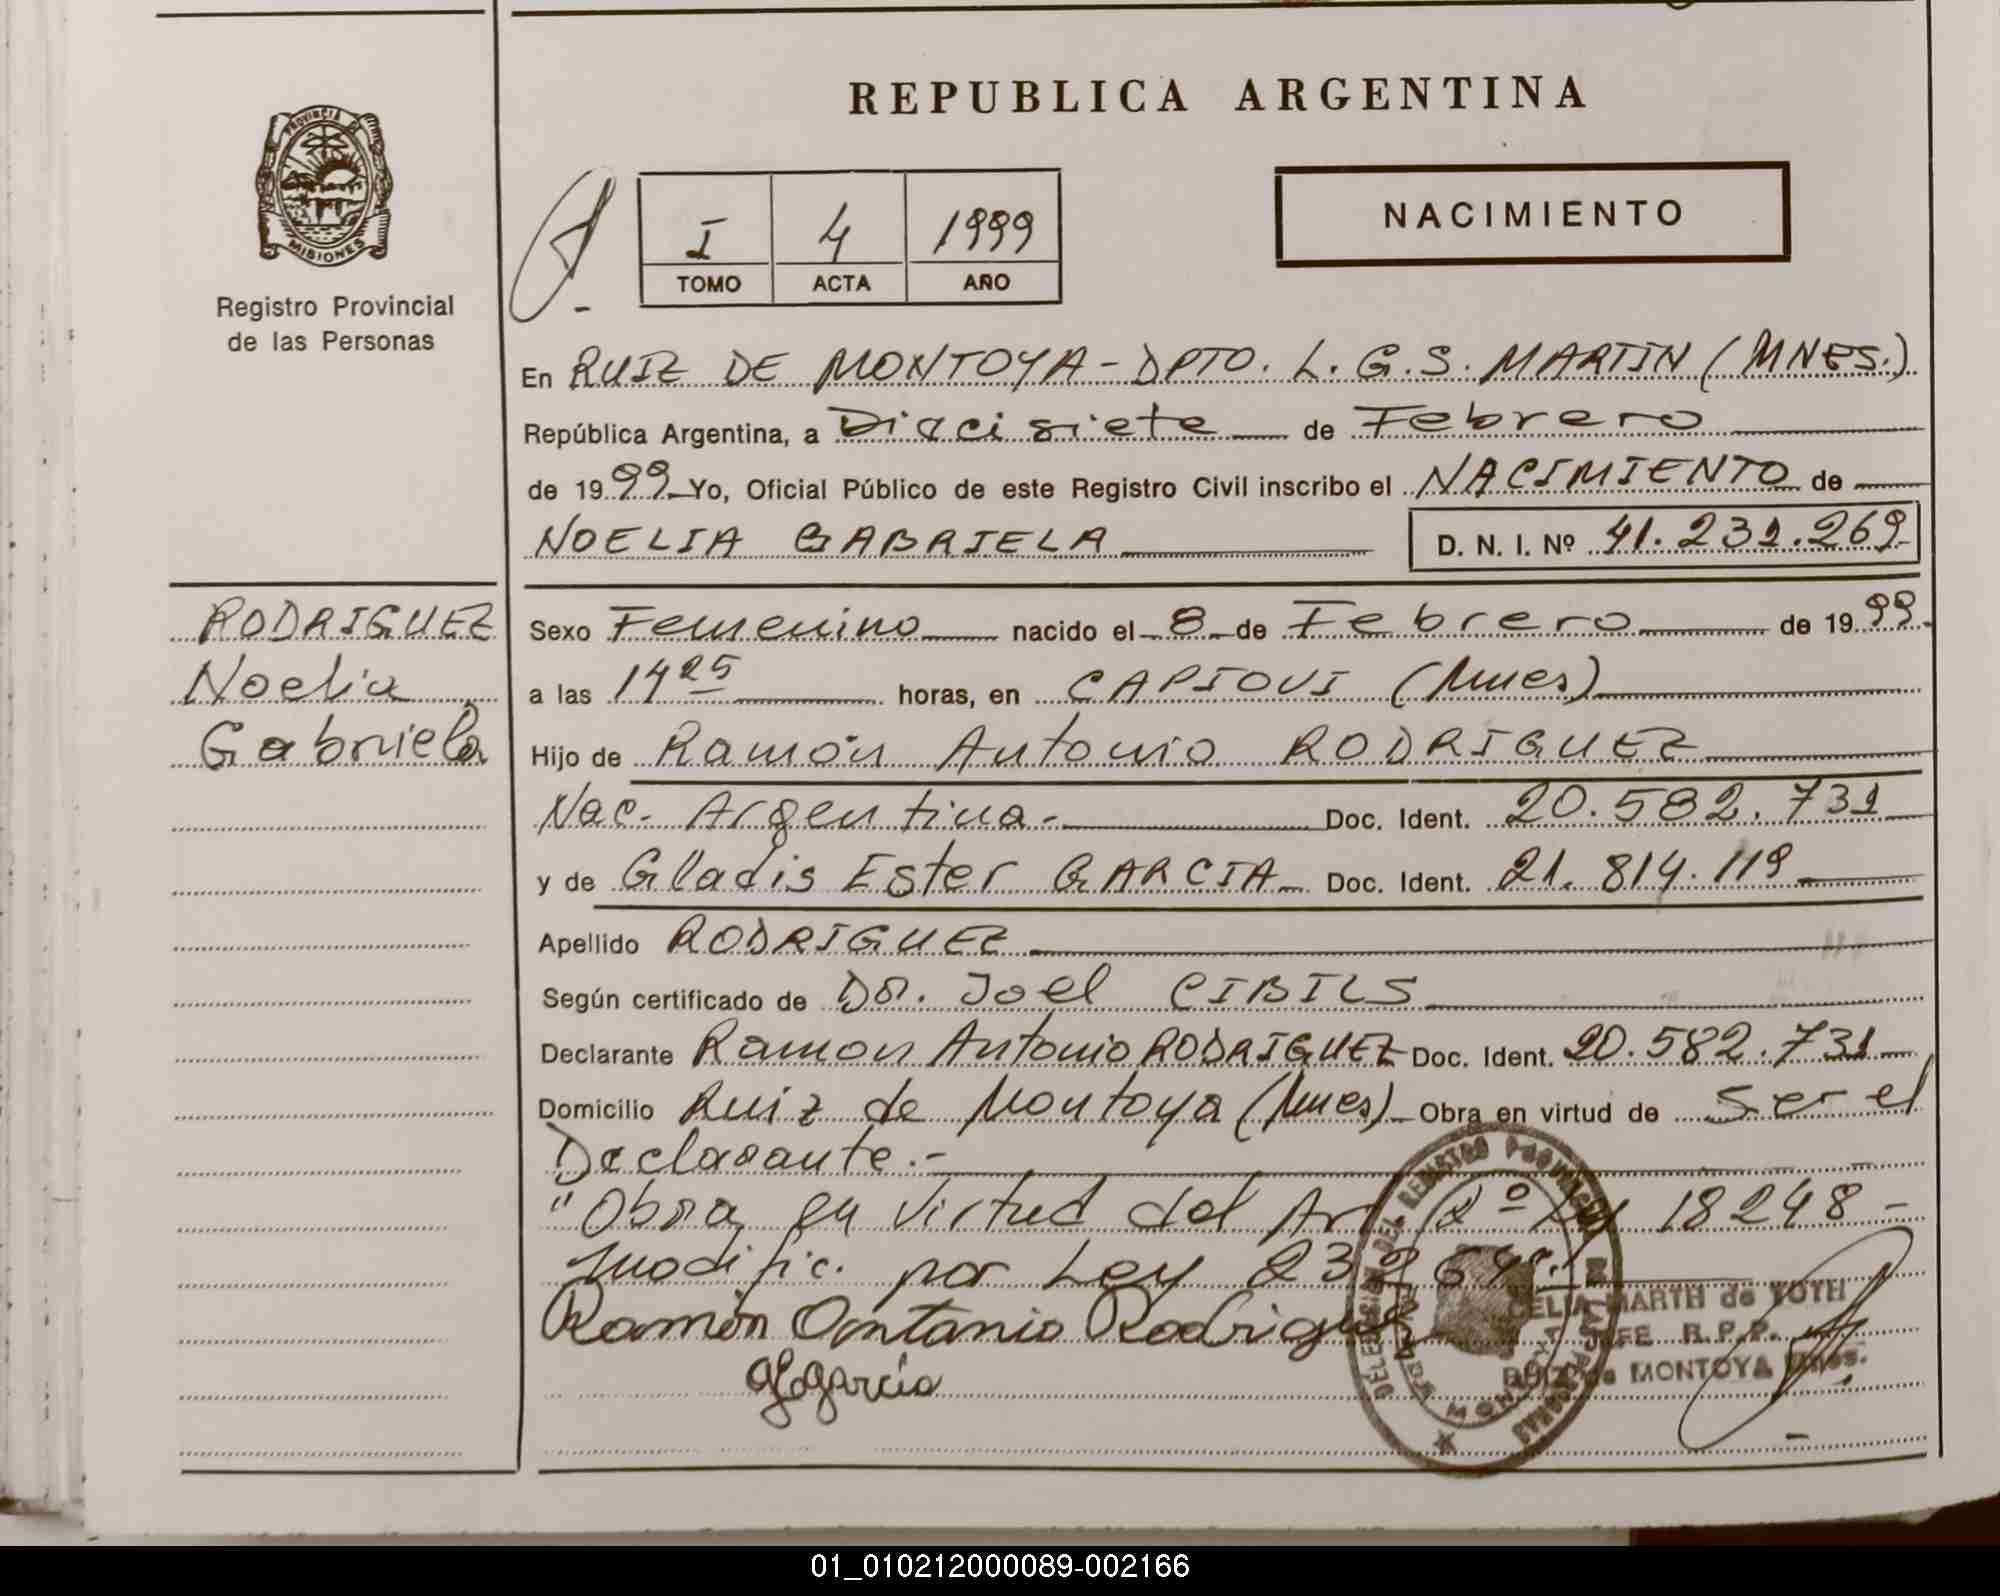 REPUBLICA ARGENTINA
PROVINCIA DE
MISIONES
Registro Provincial
de las Personas
I 4 1999
TOMO ACTA AÑO
NACIMIENTO
En RUIZ DE MONTOYA - DPTO. L. G. S. MARTIN (MNES.)
República Argentina, a Diecisiete de Febrero
de 1999 Yo, Oficial Público de este Registro Civil inscribo el NACIMIENTO de
NOELIA GABRIELA D. N. I. Nº 41.231.269
RODRIGUEZ
Noelia
Gabriela
Sexo Femenino nacido el 8 de Febrero de 1999.
a las 14 25 horas, en CAPIOVI (Mnes)
Hijo de Ramón Antonio RODRIGUEZ
Nac. Argentina.- Doc. Ident. 20.582.731
y de Gladis Ester GARCIA Doc. Ident. 21.814.119
Apellido RODRIGUEZ
Según certificado de Dr. Joel CIBILS
Declarante Ramon Antonio RODRIGUEZ Doc. Ident. 20.582.731
Domicilio Ruiz de Montoya (Mnes) Obra en virtud de ser el
Declarante.-
"Obra en virtud del Art 2º Ley 18248 -
modific. por Ley 23264".-
Ramón Antonio Rodriguez
García
DELEGACION DEL REGISTRO PROVINCIAL DE LAS PERSONAS
CELIA MARTH de TOTH
JEFE R.P.P.
RUIZ de MONTOYA Mnes.
01_010212000089-002166